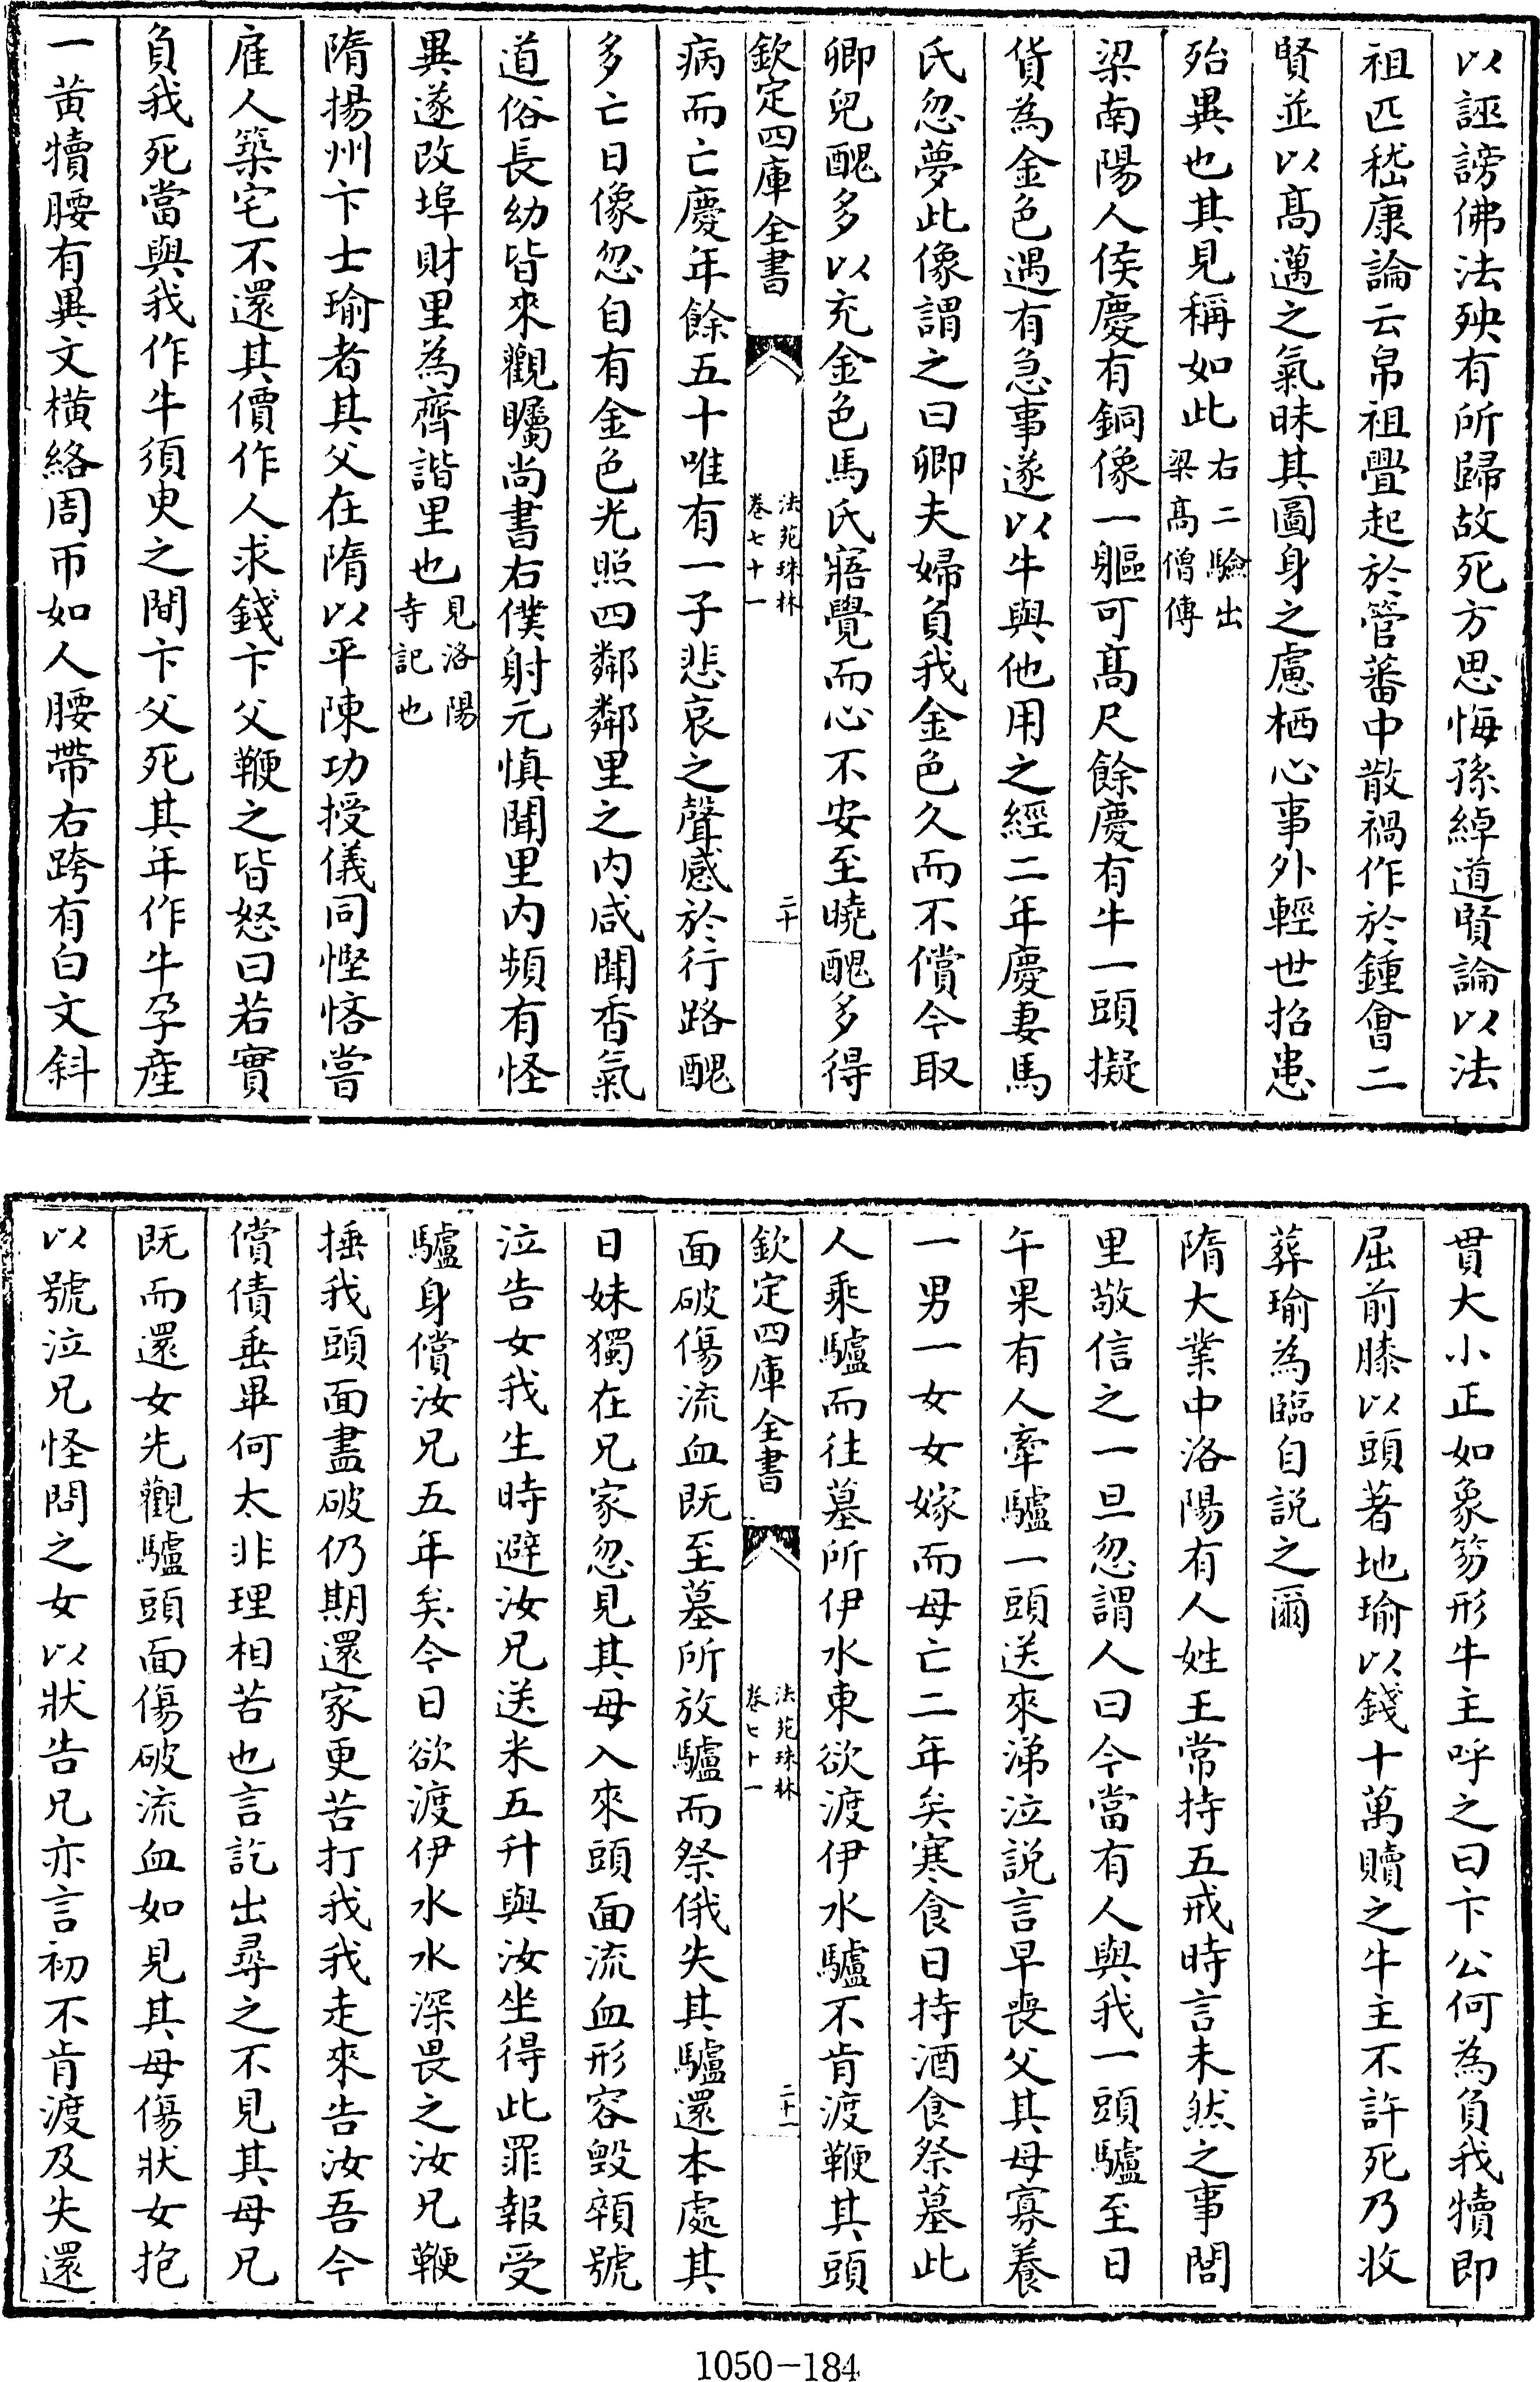 以誣謗佛法殃有所歸故死方思悔孫綽道賢論以法
祖匹嵇康論云帛祖釁起於管蕃中散禍作於鍾會二
賢並以髙邁之氣昧其圖身之慮栖心事外輕世招患
殆異也其見稱如此右二驗出梁髙僧傳
梁南陽人侯慶有銅像一軀可髙尺餘慶有牛一頭擬
貨為金色遇有急事遂以牛與他用之經二年慶妻馬
氏忽夢此像謂之曰卿夫婦負我金色久而不償今取
卿兒醜多以充金色馬氏寤覺而心不安至曉醜多得
欽定四庫全書 法苑珠林卷七十一 二十
病而亡慶年餘五十唯有一子悲哀之聲感於行路醜
多亡日像忽自有金色光照四鄰鄰里之内咸聞香氣
道俗長幼皆來觀矚尚書右僕射元慎聞里内頻有怪
異遂改埠財里為齊諧里也見洛陽寺記也
隋揚州卞士瑜者其父在隋以平陳功授儀同慳悋嘗
雇人築宅不還其價作人求錢卞父鞭之皆怒曰若實
負我死當與我作牛須臾之間卞父死其年作牛孕產
一黃犢腰有異文橫絡周帀如人腰帶右跨有白文斜
貫大小正如象笏形牛主呼之曰卞公何為負我犢即
屈前膝以頭著地瑜以錢十萬贖之牛主不許死乃收
葬瑜為臨自説之爾
隋大業中洛陽有人姓王常持五戒時言未然之事閭
里敬信之一旦忽謂人曰今當有人與我一頭驢至日
午果有人牽驢一頭送來涕泣説言早喪父其母寡養
一男一女女嫁而母亡二年矣寒食日持酒食祭墓此
人乘驢而往墓所伊水東欲渡伊水驢不肯渡鞭其頭
欽定四庫全書 法苑珠林卷七十一 二十一
面破傷流血既至墓所放驢而祭俄失其驢還本處其
日妹獨在兄家忽見其母入來頭面流血形容毀顇號
泣告女我生時避汝兄送米五升與汝坐得此罪報受
驢身償汝兄五年矣今日欲渡伊水水深畏之汝兄鞭
捶我頭面盡破仍期還家更苦打我我走來告汝吾今
償債垂畢何太非理相苦也言訖出尋之不見其母兄
既而還女先觀驢頭面傷破流血如見其母傷狀女抱
以號泣兄怪問之女以狀告兄亦言初不肯渡及失還
1050-184